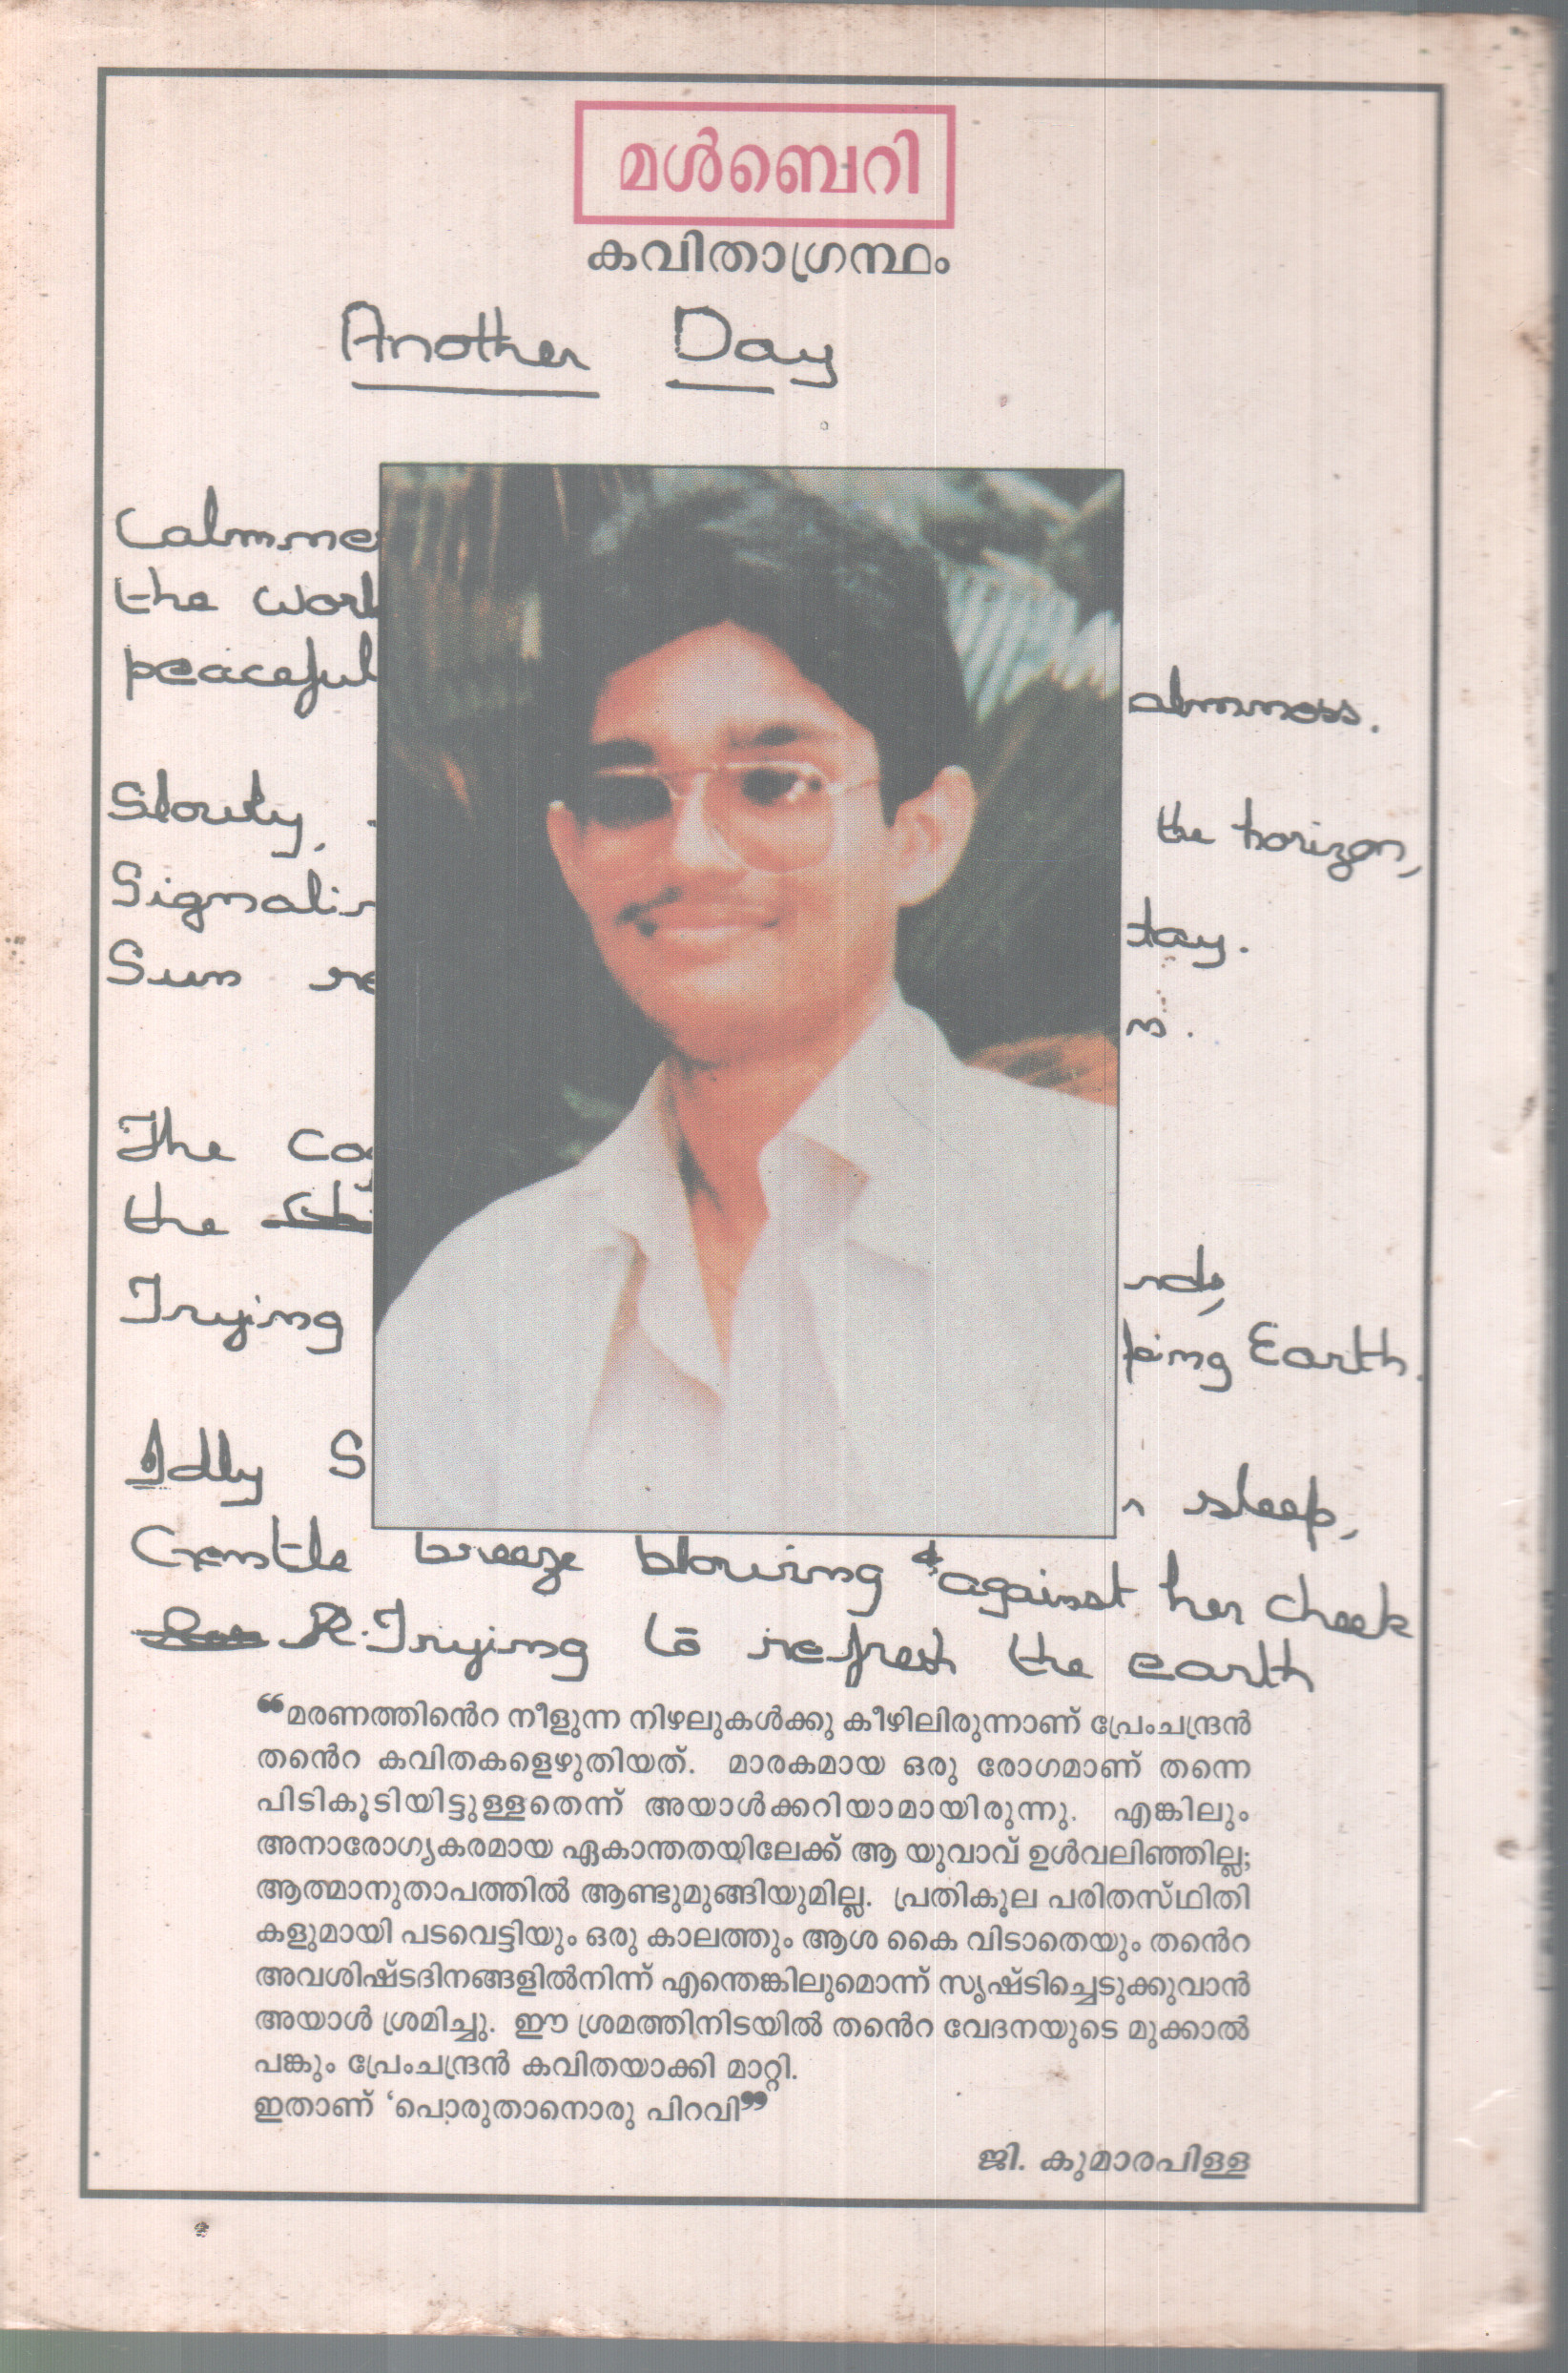 മൾബെറി
കവിതാഗ്രന്ഥം
Another Day
Calmne
the worl
peaceful
almness.
Slowly,
the horizon,
Signalin
tay.
Sun re
n.
The co
the
nds,
Trying
ping Earth.
Idly S
n sleep,
Gentle breeze blowing against her cheek
Trying to refresh the earth
❝മരണത്തിൻെറ നീളുന്ന നിഴലുകൾക്കു കീഴിലിരുന്നാണ് പ്രേംചന്ദ്രൻ
തൻെറ കവിതകളെഴുതിയത്. മാരകമായ ഒരു രോഗമാണ് തന്നെ
പിടികൂടിയിട്ടുള്ളതെന്ന് അയാൾക്കറിയാമായിരുന്നു. എങ്കിലും
അനാരോഗ്യകരമായ ഏകാന്തതയിലേക്ക് ആ യുവാവ് ഉൾവലിഞ്ഞില്ല;
ആത്മാനുതാപത്തിൽ ആണ്ടുമുങ്ങിയുമില്ല. പ്രതികൂല പരിതസ്ഥിതി
കളുമായി പടവെട്ടിയും ഒരു കാലത്തും ആശ കൈ വിടാതെയും തൻെറ
അവശിഷ്ടദിനങ്ങളിൽനിന്ന് എന്തെങ്കിലുമൊന്ന് സൃഷ്ടിച്ചെടുക്കുവാൻ
അയാൾ ശ്രമിച്ചു. ഈ ശ്രമത്തിനിടയിൽ തൻെറ വേദനയുടെ മുക്കാൽ
പങ്കും പ്രേംചന്ദ്രൻ കവിതയാക്കി മാറ്റി.
ഇതാണ് ‘പൊരുതാനൊരു പിറവി❞
ജി. കുമാരപിള്ള